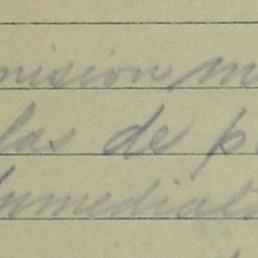 misión m
las de p
inmediat